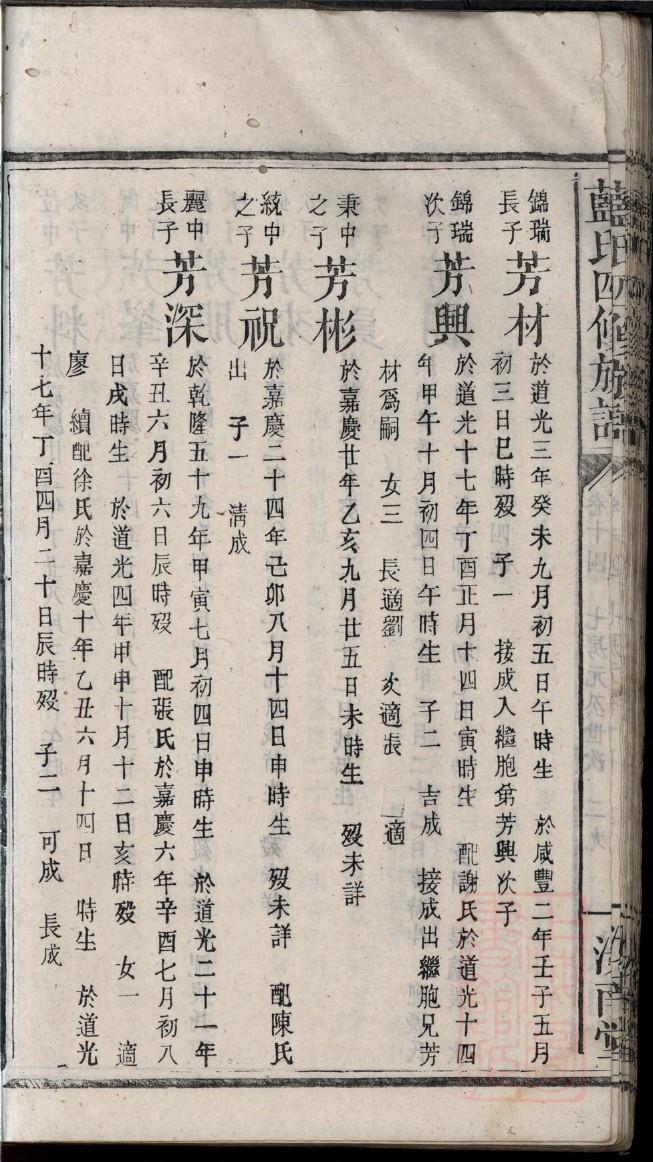 藍氏四修族譜
卷十四 七房元公世次 二九
汝南堂
錦瑞長子 芳材 於道光三年癸未九月初五日午時生 於咸豐二年壬子五月
初三日巳時歿 子一 接成入繼胞弟芳興次子
錦瑞次子 芳興 於道光十七年丁酉正月十四日寅時生 配謝氏於道光十四
年甲午十月初四日午時生 子二 吉成 接成出繼胞兄芳
材爲嗣 女三 長適劉 次適張 一適
秉中之子 芳彬 於嘉慶廿年乙亥九月廿五日未時生 歿未詳
統中之子 芳祝 於嘉慶二十四年己卯八月十四日申時生 歿未詳 配陳氏
出 子一 清成
麗中長子 芳深 於乾隆五十九年甲寅七月初四日申時生 於道光二十一年
辛丑六月初六日辰時歿 配張氏於嘉慶六年辛酉七月初八
日戌時生 於道光四年甲申十月十二日亥時歿 女一 適
廖 續配徐氏於嘉慶十年乙丑六月十四日 時生 於道光
十七年丁酉四月二十日辰時歿 子二 可成 長成